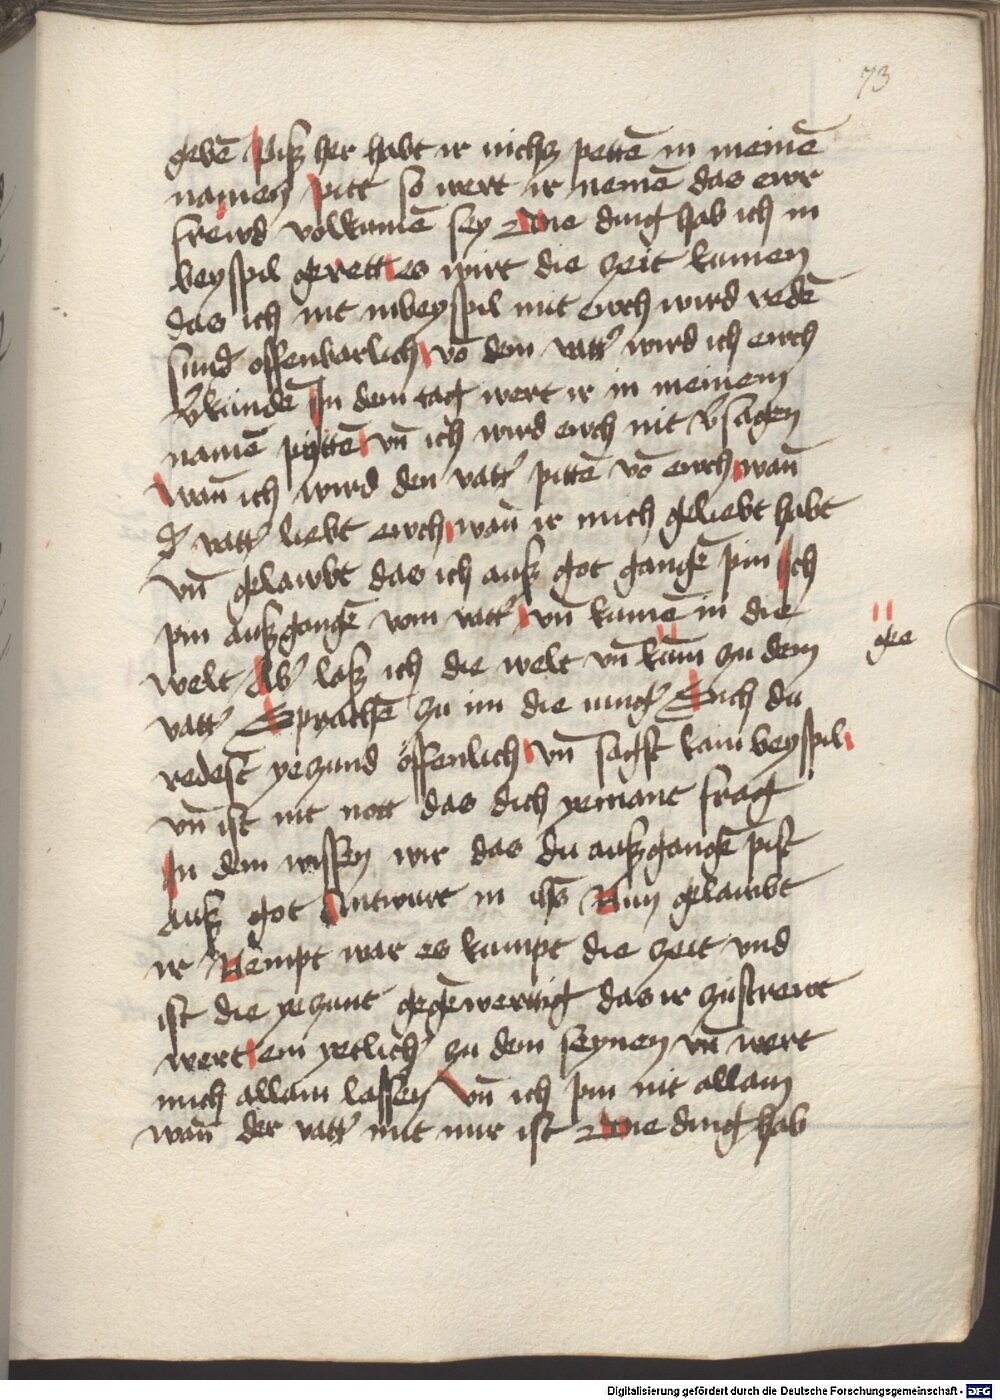 73
gebē Piß her habt ir nichcz pettē in meinē
namen pitt so wert ir nemē das ewr
frewd volkumē sey Die ding hab ich in
beyspil gerett es wirt die zeit kumen
das ich nit inbeyspil mit ewch wird redē
sund offenbarlich võ dem vatt' wird ich ewch
v'kundē In dem tag wert ir in meinem
namē pittē vn̄ ich wird ewch nit v'sagen
wan̄ ich wird den vatt' pittē võ ewch wan̄
d' vatt' liebt ewch wan̄ ir mich geliebt habt
vn̄ gelawbt das ich auß got gangē pin Ich
pin außgangē vom vatt' vn̄ kumē in die
welt Ab' laß ich die welt vn̄ kum̄ zu dem
gee
vatt' Sprachē zu im die iung' Sich du
redest yeczund offenlich vn̄ sagst kain beyspil
vn̄ ist nit nott das dich yemant frag
In dem wissen wir das du außgangē pist
auß got Antwurt in ihs Nun gelawbt
ir Nempt war es kumpt die zeit vnd
ist die yeczunt gegēwerttig das ir zustrewt
wert ein yetlich' zu dem seynen vn̄ wert
mich allain lassen vn̄ ich pin nit allain
wan̄ der vatt' mit mir ist Die ding hab
Digitalisierung gefördert durch die Deutsche Forschungsgemeinschaft - DFG